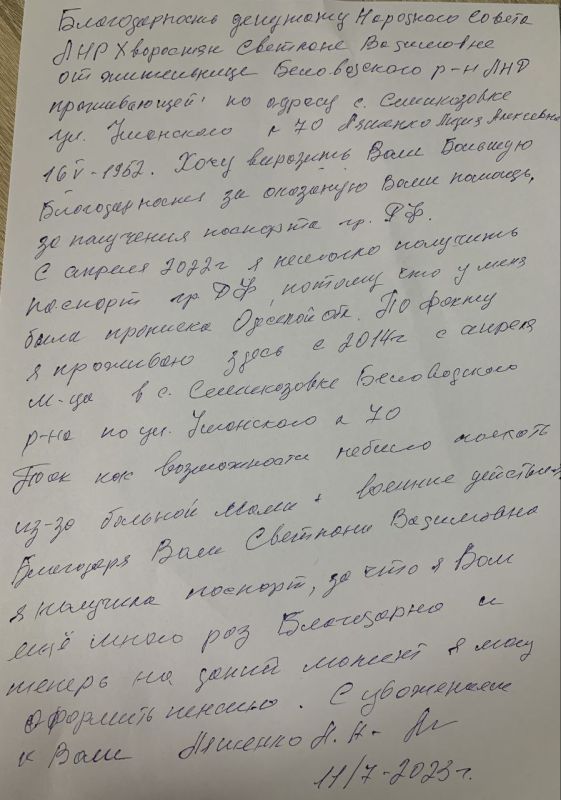 Благодарность депутату Народного Совета
ЛНР Хворостян Светлане Вадимовне
от жительнице Беловодского р-н ЛНР
проживающей по адресу с. Семикозовке
ул. Уманского 70 Ляшенко Лидия Алексеевна
16 V-1952. Хочу виразить Вам Большую
Благодарность за оказаную Вами помощь,
за получения паспорта гр. РФ.
С апреля 2022г я немогла получить
паспорт гр. РФ, потому что у меня
была прописка Одесской обл. По факту
я проживаю здесь с 2014г с апреля
м-ца в с. Семикозовке Беловодского
р-на по ул. Уманского 70
Так как возможности небыло поехать
из-за больной мами + военние действия,
Благодаря Вам Светлана Вадимовна
я получила паспорт, за что я Вам
ещё много раз Благодарна и
теперь на даний момент я могу
оформить пенсию. С уважением
к Вам Ляшенко Л. А-
11/7-2023г.